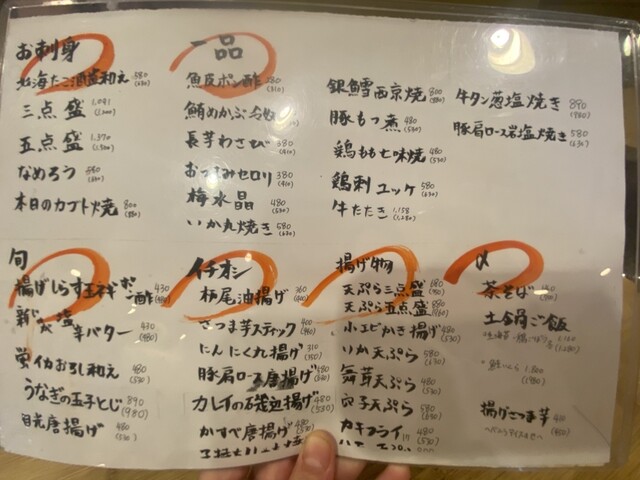 お刺身
北海たこ酒盗和え 580 (630)
三点盛 1,091 (1,200)
五点盛 1,370
なめろう 580
本日のカブト焼 800
一品
魚皮ポン酢 280 (310)
鮪めかぶ
長芋わさび 380
おつまみセロリ 380
梅水晶 480 (530)
いか丸焼き 580 (630)
銀鱈西京焼 800 (880)
豚もつ煮 480 (530)
鶏もも七味焼 480 (530)
鶏刺ユッケ 580 (630)
牛たたき 1,158 (1,280)
牛タン葱塩焼き 890 (980)
豚肩ロース岩塩焼き 580 (630)
旬
揚げしらす玉ネギポン酢 430
新じゃが塩辛バター 430
蛍イカおろし和え 480 (530)
うなぎの玉子とじ 890 (980)
目光唐揚げ 480 (530)
イチオシ
栃尾油揚げ 360
さつま芋スティック 400
にんにくれ揚げ 310
豚肩ロース唐揚げ 480
カレイの磯辺揚げ 480 (530)
かすべ唐揚げ 480 (530)
揚げ物
天ぷら三点盛 680
天ぷら五点盛
小エビかき揚げ 480 (530)
いか天ぷら 580 (630)
舞茸天ぷら 480
穴子天ぷら 580
カキフライ 480 (530)
〆
茶そば
土鍋ご飯
1,160 (1,280)
1,800 (1,980)
揚げさつま芋 410 (450)